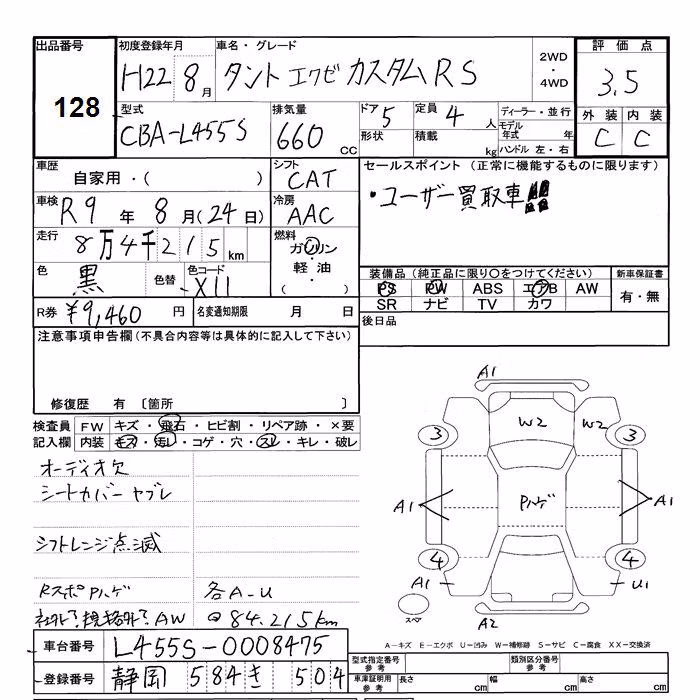 出品番号 初度登録年月 車名・グレード 2WD ・ 4WD 評価点
128 H22 8月 タント エクゼ カスタム RS 3.5
型式 排気量 ドア 5 定員 4人 ディーラー・並行 外装 内装
CBA-L455S 660 CC 形状 積載 kg モデル年式 年 ハンドル 左・右 C C
車歴 自家用・( ) シフト CAT セールスポイント (正常に機能するものに限ります)
車検 R9年 8月(24日) 冷房 AAC ・ユーザー買取車!!
走行 8万4千215km 燃料 ガソリン・軽油・( )
色 黒 色替 色コード X11 装備品 (純正品に限り○をつけてください) 新車保証書
PS PW ABS エアB AW 有・無
SR ナビ TV カワ
R券 ¥9,460 円 名変通知期限 月 日 後日品
注意事項申告欄(不具合内容等は具体的に記入して下さい)
修復歴 有 〔箇所 〕
検査員 FW キズ・飛石・ヒビ割・リペア跡・×要
記入欄 内装 キズ・汚レ・コゲ・穴・スレ・キレ・破レ
オーディオ欠
シートカバー ヤブレ
シフトレンジ点滅
Rスポ Pハゲ 各A-U
社外?規格外?AW @84.215km
車台番号 L455S-0008475
登録番号 静岡 584 き 504
A1
W2 W2
3 3
A1 Pハゲ A1
4 4
A1 U1
スペア A2
A-キズ E-エクボ U-凹み W-補修跡 S-サビ C-腐食 XX-交換済
型式指定番号 参考 類別区分番号 参考
車庫証明用 参考 長さ cm 幅 cm 高さ cm